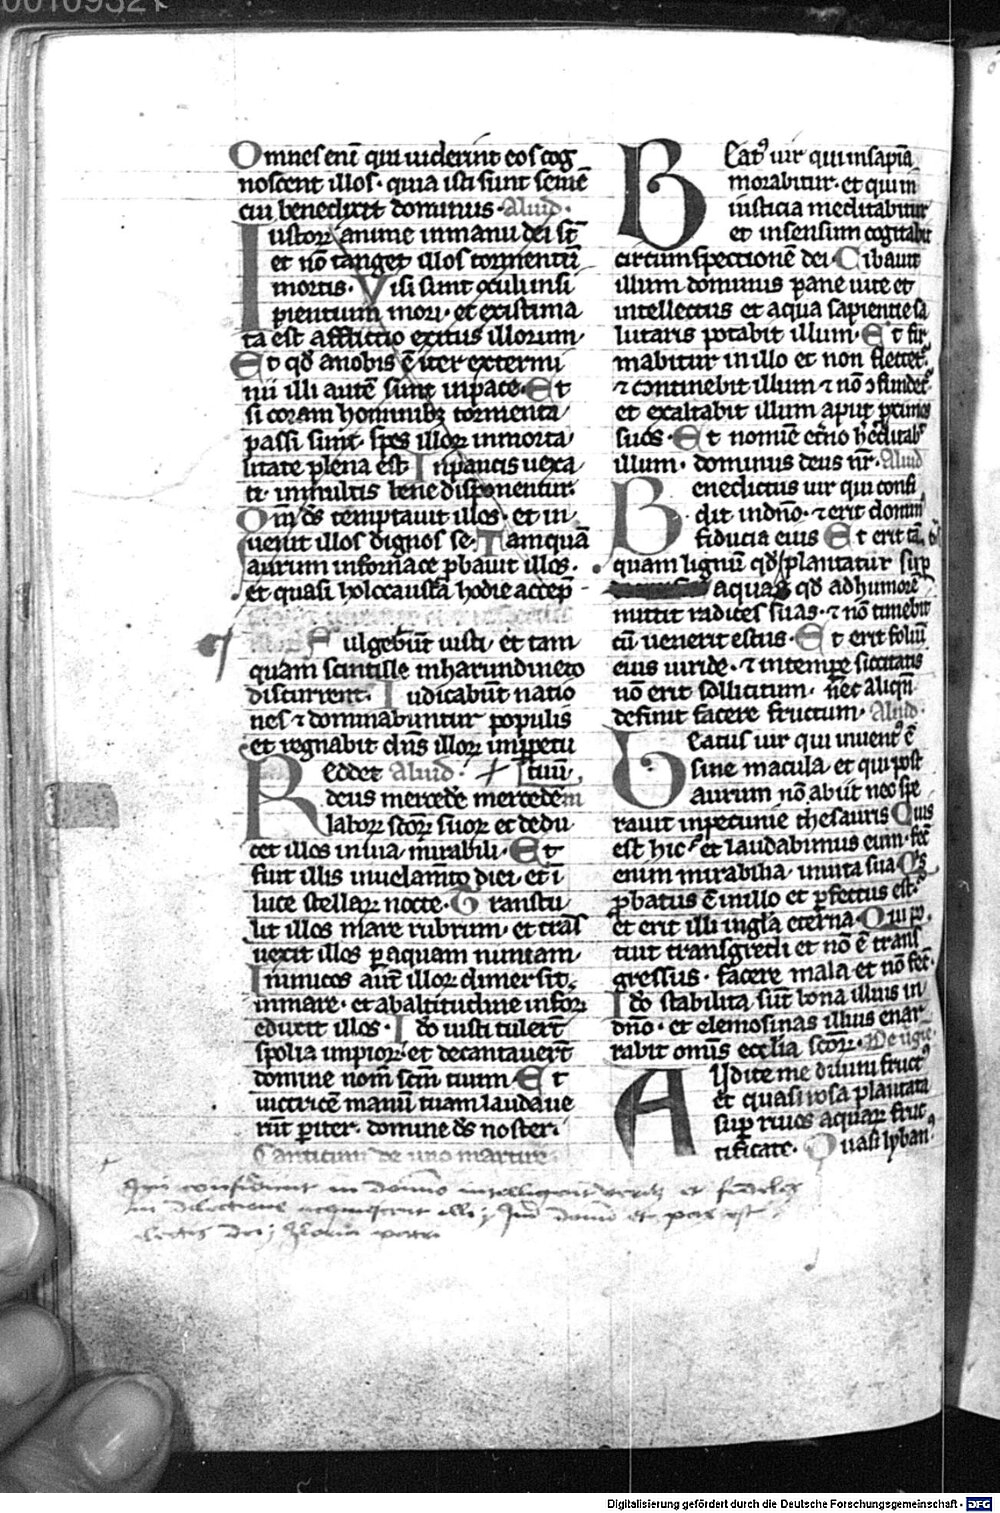 Omnes eni̅ qui uiderint eos cog
noscent illos. quia isti sunt seme̅
cui benedixit dominus. Aliud.
Iustoꝝ anime in manu dei st̅
et no̅ tanget illos tormentu̅
mortis. Visi sunt oculi insi
pientium mori. et existima
ta est afflictio exitus illorum.
Et qd̅ a nobis e̅ iter extermi
nii illi aute̅ sunt in pace. Et
si coram hominibꝫ tormenta
passi sunt. spes illoꝝ inmorta
litate plena est. In paucis uexa
ti. in multis bene disponentur.
Om̅ ds̅ temptauit illos. et in
uenit illos dignos se. Tamqua̅
aurum in fornace ꝓbauit illos.
et quasi holocausta hodie accep̅
Fulgebu̅t iusti. et tam
quam scintille in harundineto
discurrent. Iudicabu̅t natio
nes ⁊ dominabuntur populis
et regnabit dn̅s illoꝝ in ꝑpetu
Reddet Aliud. tuu̅
deus mercede̅ mercedem
laboꝝ sc̅oꝝ suoꝝ et dedu
cet illos in uia mirabili. Et
fuit illis in uelam̅to diei. et i̅
luce stellaꝝ nocte. Transtu
lit illos mare rubrum. et tra̅s
uexit illos ꝑ aquam nimiam.
Inimicos aut̅ illoꝝ dimersit
in mare. et ab altitudine inferoꝝ
eduxit illos. Ido iusti tuler̅t
spolia impioꝝ. et decantauer̅t
domine nom̅ sc̅m tuum. Et
uictrice̅ manu̅ tuam laudaue
ru̅t ꝑiter. domine ds̅ noster.
Canticum de uno martire
Qui confidunt in domino intelligent veritatem et fideles
in dilectione acquiescent illi; Quoniam donum et pax est
electis dei; Gloria patri
Beat᷒ uir qui in sapia̅
morabitur. et qui in
iusticia meditabitur
et in sensum cogitabit
circumspectione̅ dei. Cibauit
illum dominus pane uite et
intellectus et aqua sapientie sa
lutaris potabit illum. Et fir
mabitur in illo et non flectet᷒.
⁊ continebit illum ⁊ no̅ ↄfundet᷒
et exaltabit illum aput ꝓximos
suos. Et nomi̅e et̅no h̅editab᷒
illum. dominus deus nr̅. Aliud
Benedictus uir qui confi
dit in dn̅o. ⁊ erit domin᷒
fiducia eius Et erit ta̅
quam lignu̅ qd̅ plantatur suꝑ
aquas qd̅ ad humore̅
mittit radices suas. ⁊ no̅ timebit
cu̅ uenerit estus. Et erit foliu̅
eius uiride. ⁊ in tempe siccitatis
no̅ erit sollicitum. nec aliqn̅
desinit facere fructum. Aliud.
Beatus uir qui inuent᷒ e̅
sine macula. et qui post
aurum no̅ abiit nec spe
rauit in pecunie thesauris Quis
est hic. et laudabimus eum. fec̅
enim mirabilia in uita sua Qis
ꝓbatus e̅ in illo et ꝑfectus est.
et erit illi in gl̅a eterna. Qui po
tuit transgredi et no̅ e̅ trans
gressus. facere mala et no̅ fec̅.
Ido stabilita su̅t bona illius in
dn̅o. et elemosinas illius enar
rabit omis̅ eccl̅ia sc̅oꝝ. De uirg̅.
Audite me diuini fruct᷒
et quasi rosa plantata
suꝑ riuos aquaꝝ fruc
tificate. Quasi lyban᷒
Digitalisierung gefördert durch die Deutsche Forschungsgemeinschaft - DFG